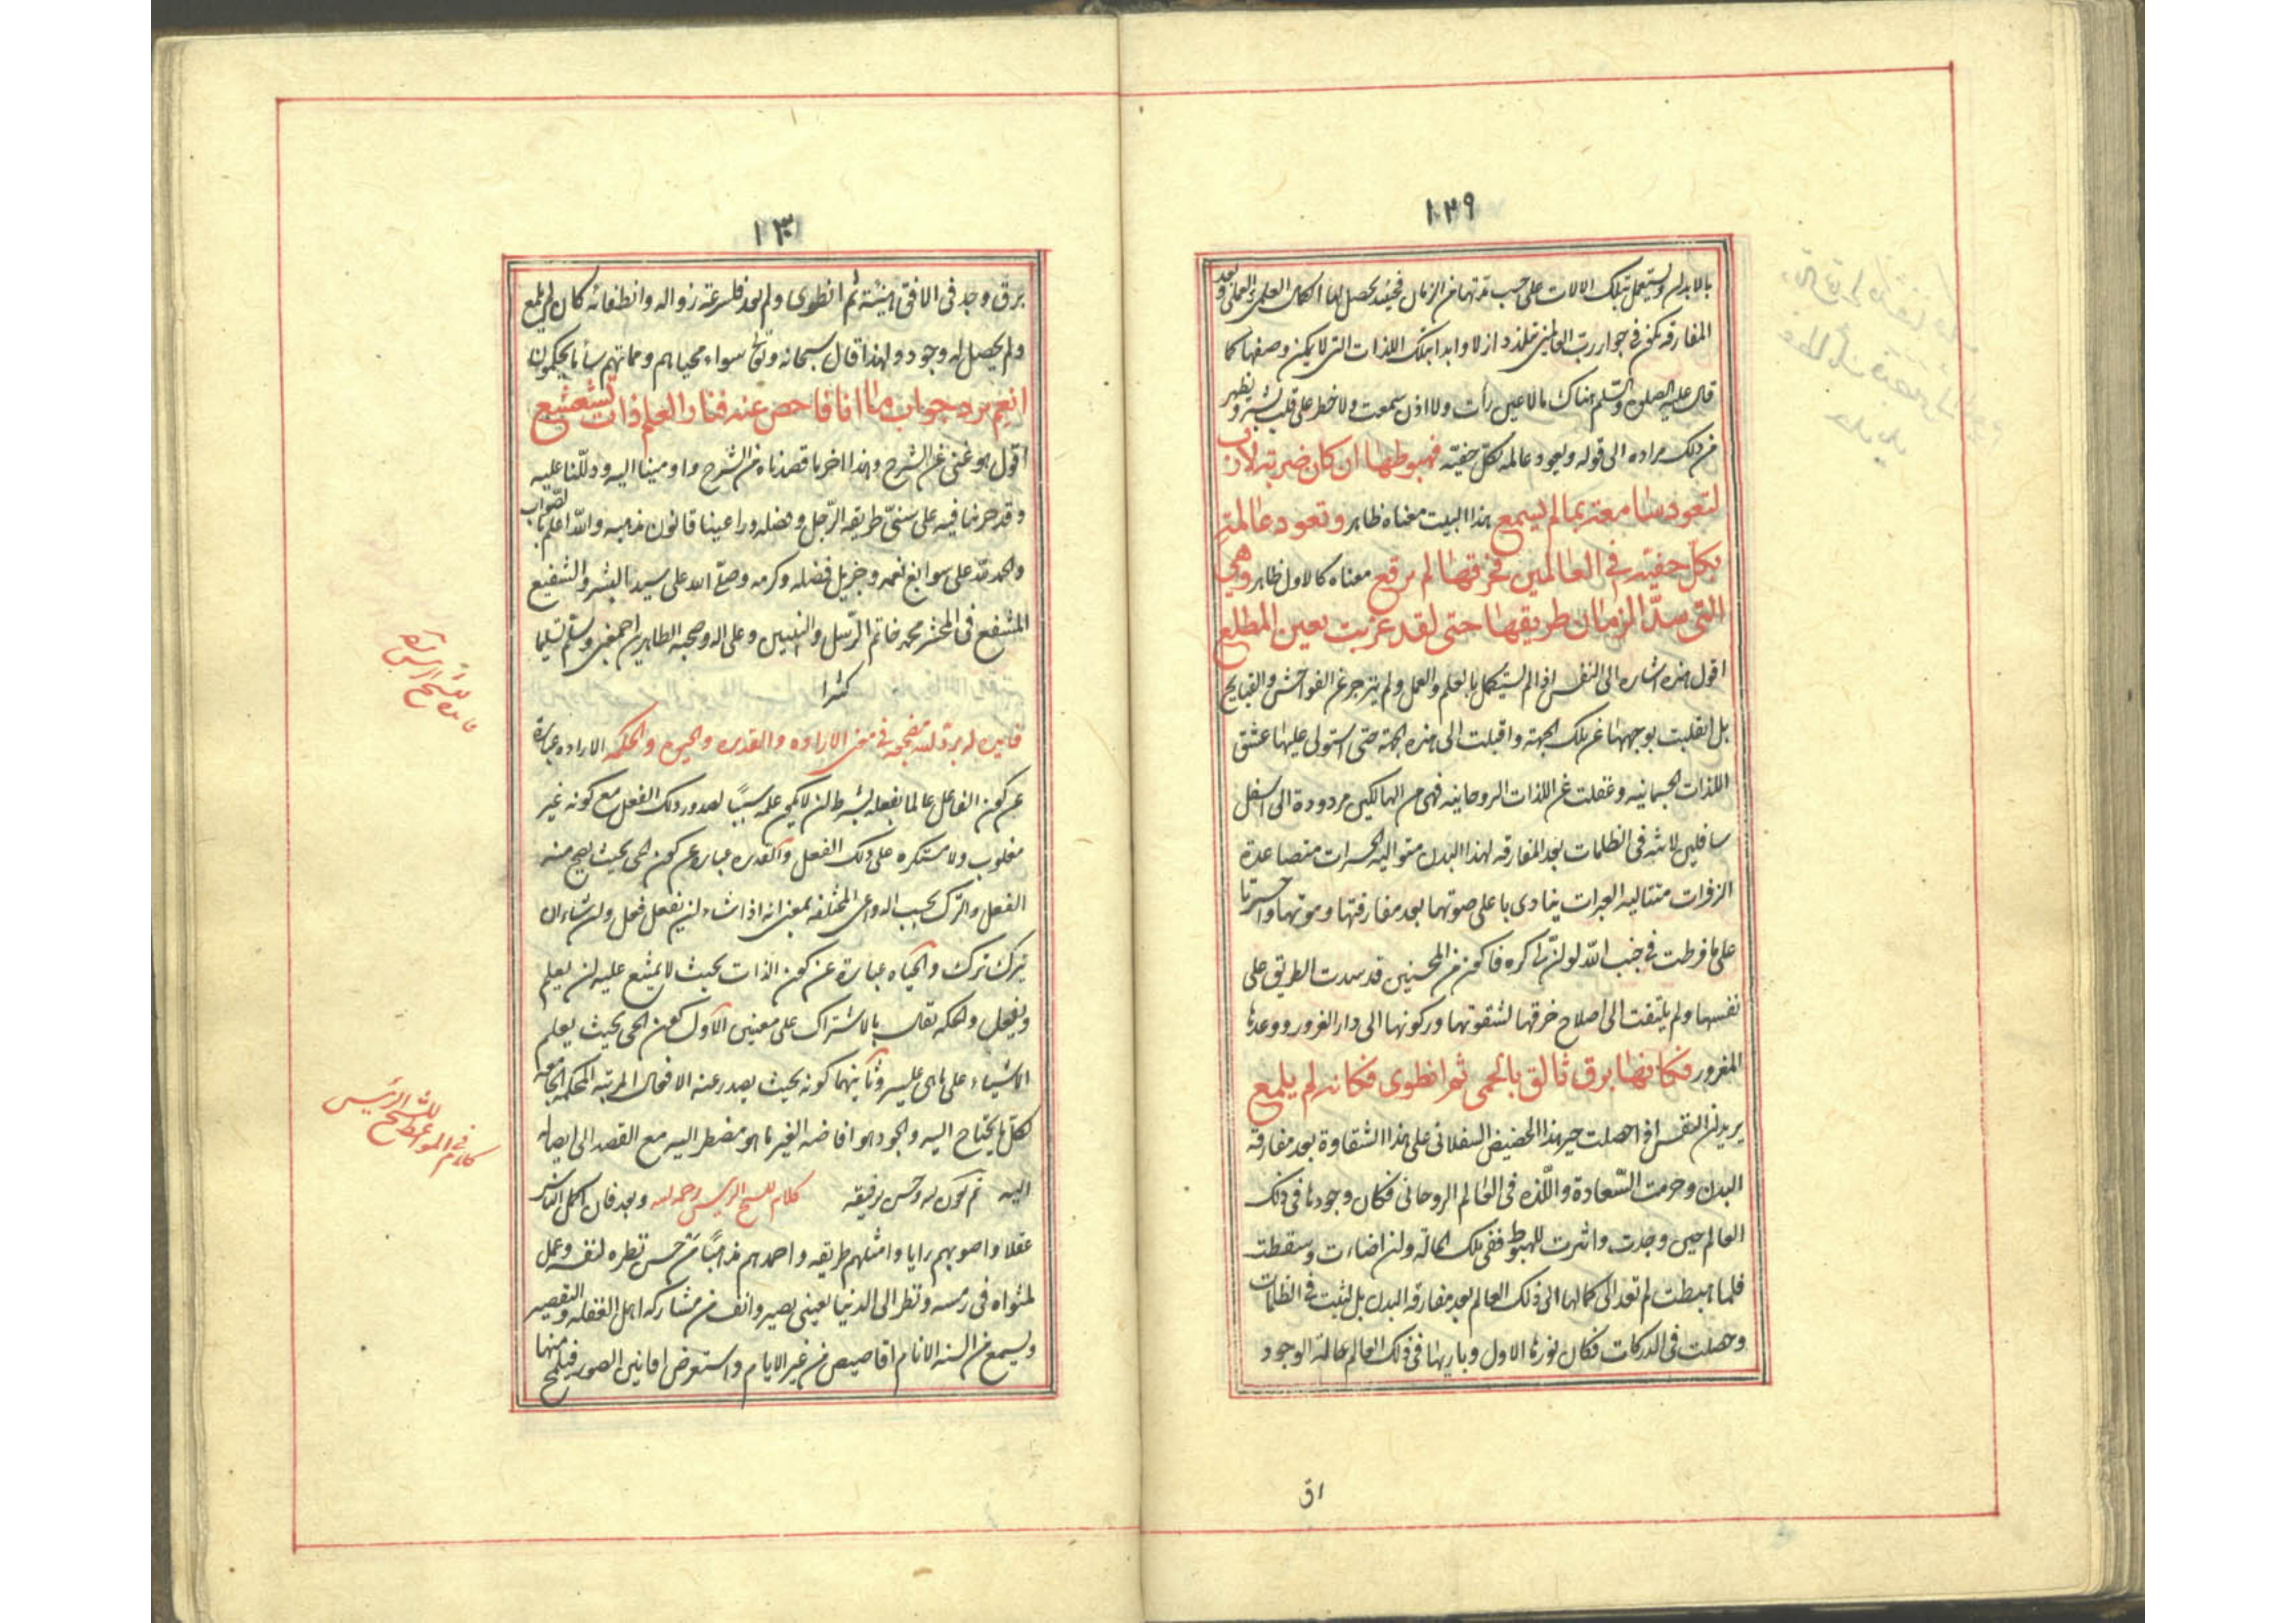 ١٢٩
بالابدان وتستعمل بتلك الالات على حسب قدرتها من الزمان فحينئذ يحصل لها الكمال العلمي والعملي وبعد
المفارقه تكن في جوار رب العالمين متلذذ ازلا وابدا بتلك اللذات التي لا يمكن وصفها كما
قال عليه الصلوة والسلم هناك ما لا عين رأت ولا اذن سمعت ولا خطر على قلب بشر ويظهر
من ذلك مراده الى قوله ويعود عالمه بكل خفيه فهبوطها ان كان ضربة لازب
لتعود سامعة بما لم يسمع هذا البيت معناه ظاهر وتعود عالمة
بكل خفية في العالمين فخرقها لم يرقع معناه كالاول ظاهر وهي
التي سد الزمان طريقها حتى لقد غربت بعين المطلع
اقول هذه اشاره الى النفس اذا لم تستكمل بالعلم والعمل ولم ينزجر عن الفواحش والقبايح
بل انقلبت بوجهها عن تلك الجهة واقبلت الى هذه الجهة حتى استولى عليها عشق
اللذات الجسمانيه وغفلت عن اللذات الروحانيه فهي من الهالكين مردودة الى اسفل
سافلين لابثه في الظلمات بعد المفارقه لهذا البدن متواليه الحسرات متصاعدة
الزفرات متتاليه العبرات ينادى باعلى صوتها بعد مفارقتها وموتها واحسرتا
على ما فرطت في جنب الله لو ان لى كره فاكون من المحسنين قد سدت الطريق على
نفسها ولم يلتفت الى اصلاح خرقها لشقوتها وركونها الى دار الغرور ووعدها
المغرور فكانها برق تالق بالحمى ثم انطوى فكانه لم يلمع
يريد ان النفس اذا حصلت حيز هذا الحضيض السفلاني على هذا الشقاوة بعد مفارقة
البدن وحرمت السعادة واللذه في العالم الروحاني فكان وجودها في ذلك
العالم حين وجدت واشرت للهبوط ففي تلك الحالة وان اضاءت وسقطت
فلما هبطت لم تعد الى كمالها الى ذلك العالم بعد مفارقه البدن بل لبثت في الظلمات
وحصلت في الدركات فكان نورها الاول وباريها في ذلك العالم عالة الوجود
اق
١٣٠
برق وجد في الافق هنيئة ثم انطوى ولم يعد فلسرعة زواله وانطفائه كان لم يلمع
ولم يحصل له وجود ولهذا قال سبحانه وتعالى سواء محياهم ومماتهم ساء ما يحكمون
انعم برد جواب ما انا فاحص عنه فنار العلم ذات تشعشع
اقول هو غني عن الشرح وهذا اخر ما قصدناه من الشرح واومينا اليه ودللنا عليه
وقد حرنا فيه على سنن طريقه الرجل وفضله وراعينا قانون مذهبه والله اعلم بالصواب
والحمد لله على سوابغ نعمه وجزيل فضله وكرمه وصلى الله على سيدنا البشر والشفيع
المشفع في المحشر محمد خاتم الرسل والنبيين وعلى اله وصحبه الطاهرين اجمعين وسلم تسليما
كثيرا
فايده له برد الله مضجعه في معنى الاراده والقدره والحيوه والحكمه الاراده عبارة
عن كون الفاعل عالما بفعله بشرط ان لا يكون علمه سببا لصدور ذلك الفعل مع كونه غير
مغلوب ولا مستكره على ذلك الفعل والقدره عبارة عن كون الحى بحيث يصح منه
الفعل والترك بحسب الدواعى المختلفه بمعنى انه اذا شاء ان يفعل فعل وان شاء ان
يترك ترك والحياه عبارة عن كون الذات بحيث لا يمتنع عليه ان يعلم
ويفعل والحكمه تقال بالاشتراك على معنيين الاول كون الحي بحيث يعلم
الاشياء على ما هى عليه وثانيهما كونه بحيث يصدر عنه الافعال المرتبه المحكمه الجامعة
لكل ما يحتاج اليه والجود هو افاضه الغير ما هو مضطر اليه مع القصد الى ايصاله
اليه تم بعون الله وحسن توفيقه كلام للشيخ الرئيس رحمه الله وبعد فان اكمل الناس
عقلا واصوبهم رايا وامثلهم طريقه واحمدهم مذهبا من حسن نظره لنفسه وعمل
لمثواه في رمسه ونظر الى الدنيا بعيني بصير وانف من مشاركه اهل الغفله والتقصير
ويسمع من السنه الانام اقاصيص من غير الايام واستعرض افانين الصور فيلمح منها
فايده للشيخ الرئيس
كلام في المواعظ للشيخ الرئيس